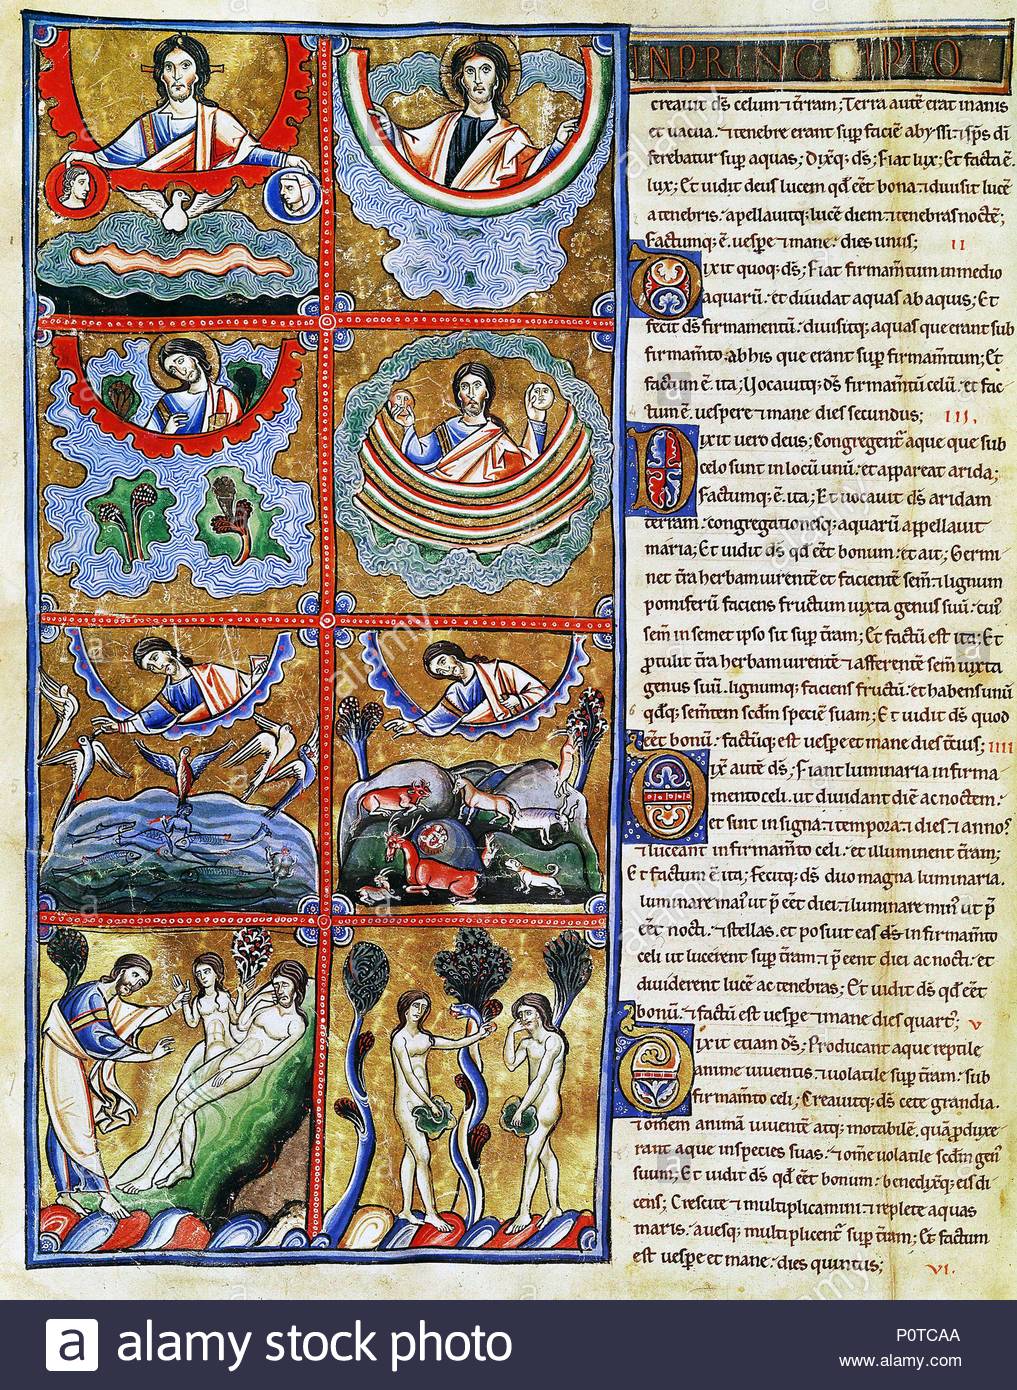 INPRINCIPIO
creauit ds̄ celum ⁊ t̄ram; Terra aute͞ erat inanis
et uacua. ⁊ tenebre erant sup̱ facie͞ abyssi ⁊ sp̄s dī
ferebatur sup̱ aquas; Dixq; ds̄; Fiat lux; Et facta e͞.
lux; Et uidit deus lucem qd̄ ee͞t bona ⁊ diuisit luce͞
a tenebris. appellauitq; luce͞ diem ⁊ tenebras nocte͞;
factumq; e͞. uesp̱e ⁊ mane. dies unus; II
Dixit quoq; ds̄; Fiat firmam̄tum in medio
aquaru͞. et diuidat aquas ab aquis; Et
fecit ds̄ firmamentu͞. diuisitq; aquas que erant sub
firmam̄to. ab his que erant sup̱ firmam̄tum; Et
factum e͞. ita; Uocauitq; ds̄ firmam̄tu͞ celu͞. et fac-
tum e͞. uespere ⁊ mane dies secundus; III.
Dixit uero deus; Congregent᷑ aque que sub
celo sunt in locu͞ unu͞. et appareat arida;
factumq; e͞. ita; Et uocauit ds̄ aridam
terram. congregationesq; aquaru͞ appellauit
maria; Et uidit ds̄ qd̄ ee͞t bonum. et ait; Germi
net t̄ra herbam uirente͞ et faciente͞ sem̄ ⁊ lignum
pomiferu͞ faciens fructum iuxta genus suu͞. cui᷒
sem̄ in semet ipso sit sup̱ t̄ram; Et factu͞ est ita; Et
p̱tulit t̄ra herbam uirente͞ ⁊ afferente͞ sem̄ iuxta
genus suu͞. lignumq; faciens fructu͞. et habens unu͞
qd̄q; sem̄tem scdm̄ specie͞ suam; Et uidit ds̄ quod
ee͞t bonu͞. factu͞q; est uesp̱e et mane dies t̄cius; IIII
Dix̄ aute͞ ds̄; Fiant luminaria in firma
mento celi. ut diuidant die͞ ac nocte͞.
et sint in signa ⁊ tempora ⁊ dies ⁊ anno᷒
⁊ luceant in firmam̄to celi. et illuminent t̄ram;
Et factum e͞. ita; Fecitq; ds̄ duo magna luminaria.
luminare mai᷒ ut p̄ ee͞t diei ⁊ luminare min᷒ ut p̄
ee͞t nocti. ⁊ stellas. et posuit eas ds̄ in firmam̄to
celi ut lucerent sup̱ t̄ram ⁊ p̄eent diei ac nocti. et
diuiderent luce͞ ac tenebras; Et uidit ds̄ qd̄ ee͞t
bonu͞. ⁊ factu͞ est uesp̱e ⁊ mane dies quart᷒; V
Dixit etiam ds̄; Producant aque reptile
anime uiuentis ⁊ uolatile sup̱ t̄ram. sub
firmam̄to celi; Creauitq; ds̄ cete grandia.
⁊ om̄em anima͞ uiuente͞ atq; motabile͞. qua͞ p̱duxe
rant aque in species suas. ⁊ om̄e uolatile scdm̄ gen᷒
suum; Et uidit ds̄ qd̄ ee͞t bonum. benedixq; eis di
cens; Crescite ⁊ multiplicamini ⁊ replete aquas
maris. auesq; multiplicent᷑ sup̱ t̄ram; Et factum
est uesp̱e et mane. dies quintus; VI.
alamy
a
alamy stock photo
P0TCAA
www.alamy.com